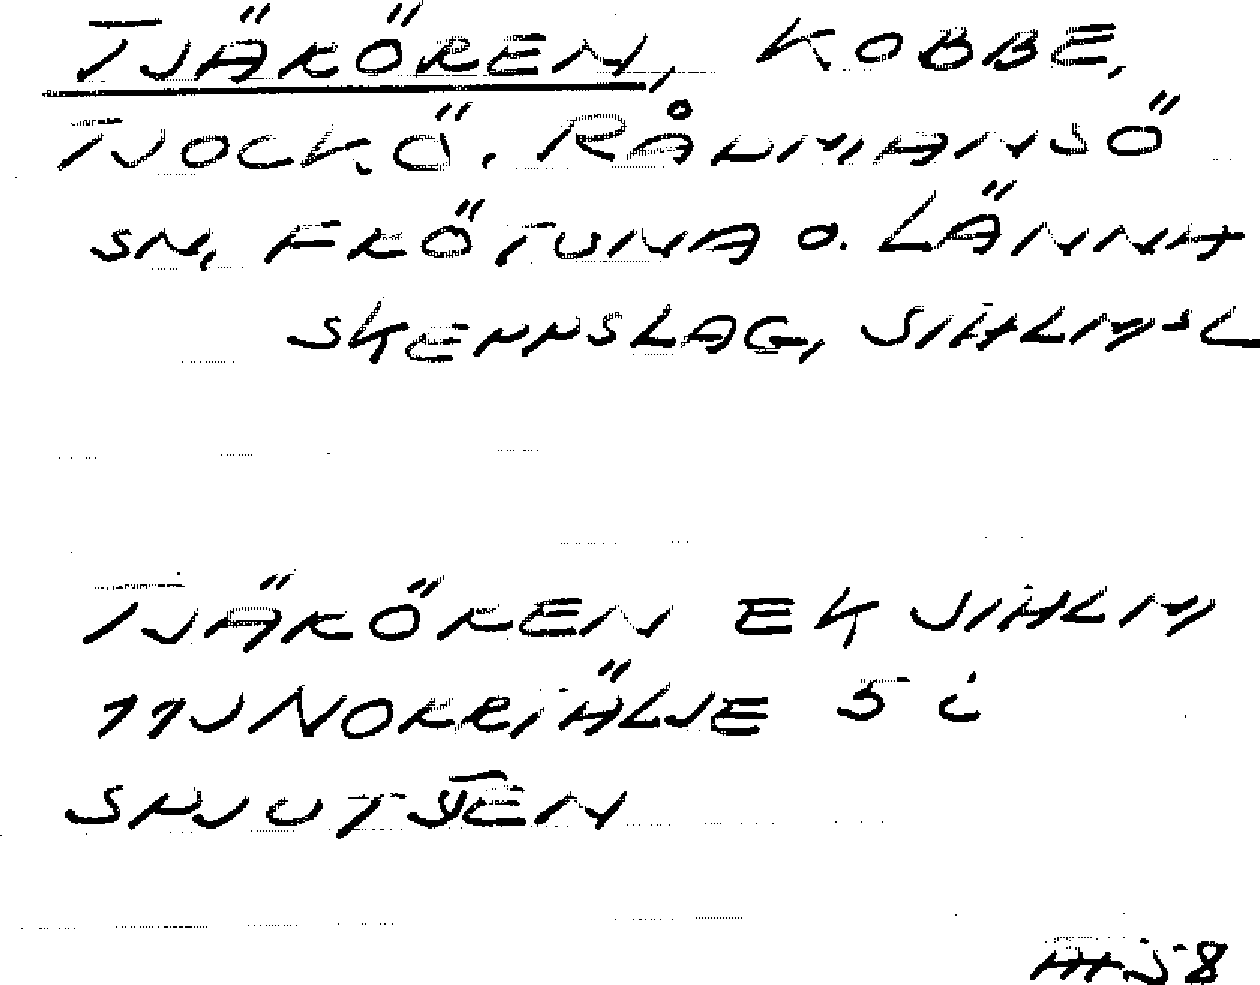 TJÄRÖREN, KOBBE,
TJOCKÖ. RÅDMANSÖ
SN, FRÖTUNA O. LÄNNA
SKEPPSLAG, STHLMSL
TJÄRÖREN EK STHLM
11J NORRTÄLJE 5 i
SPJUTSEN